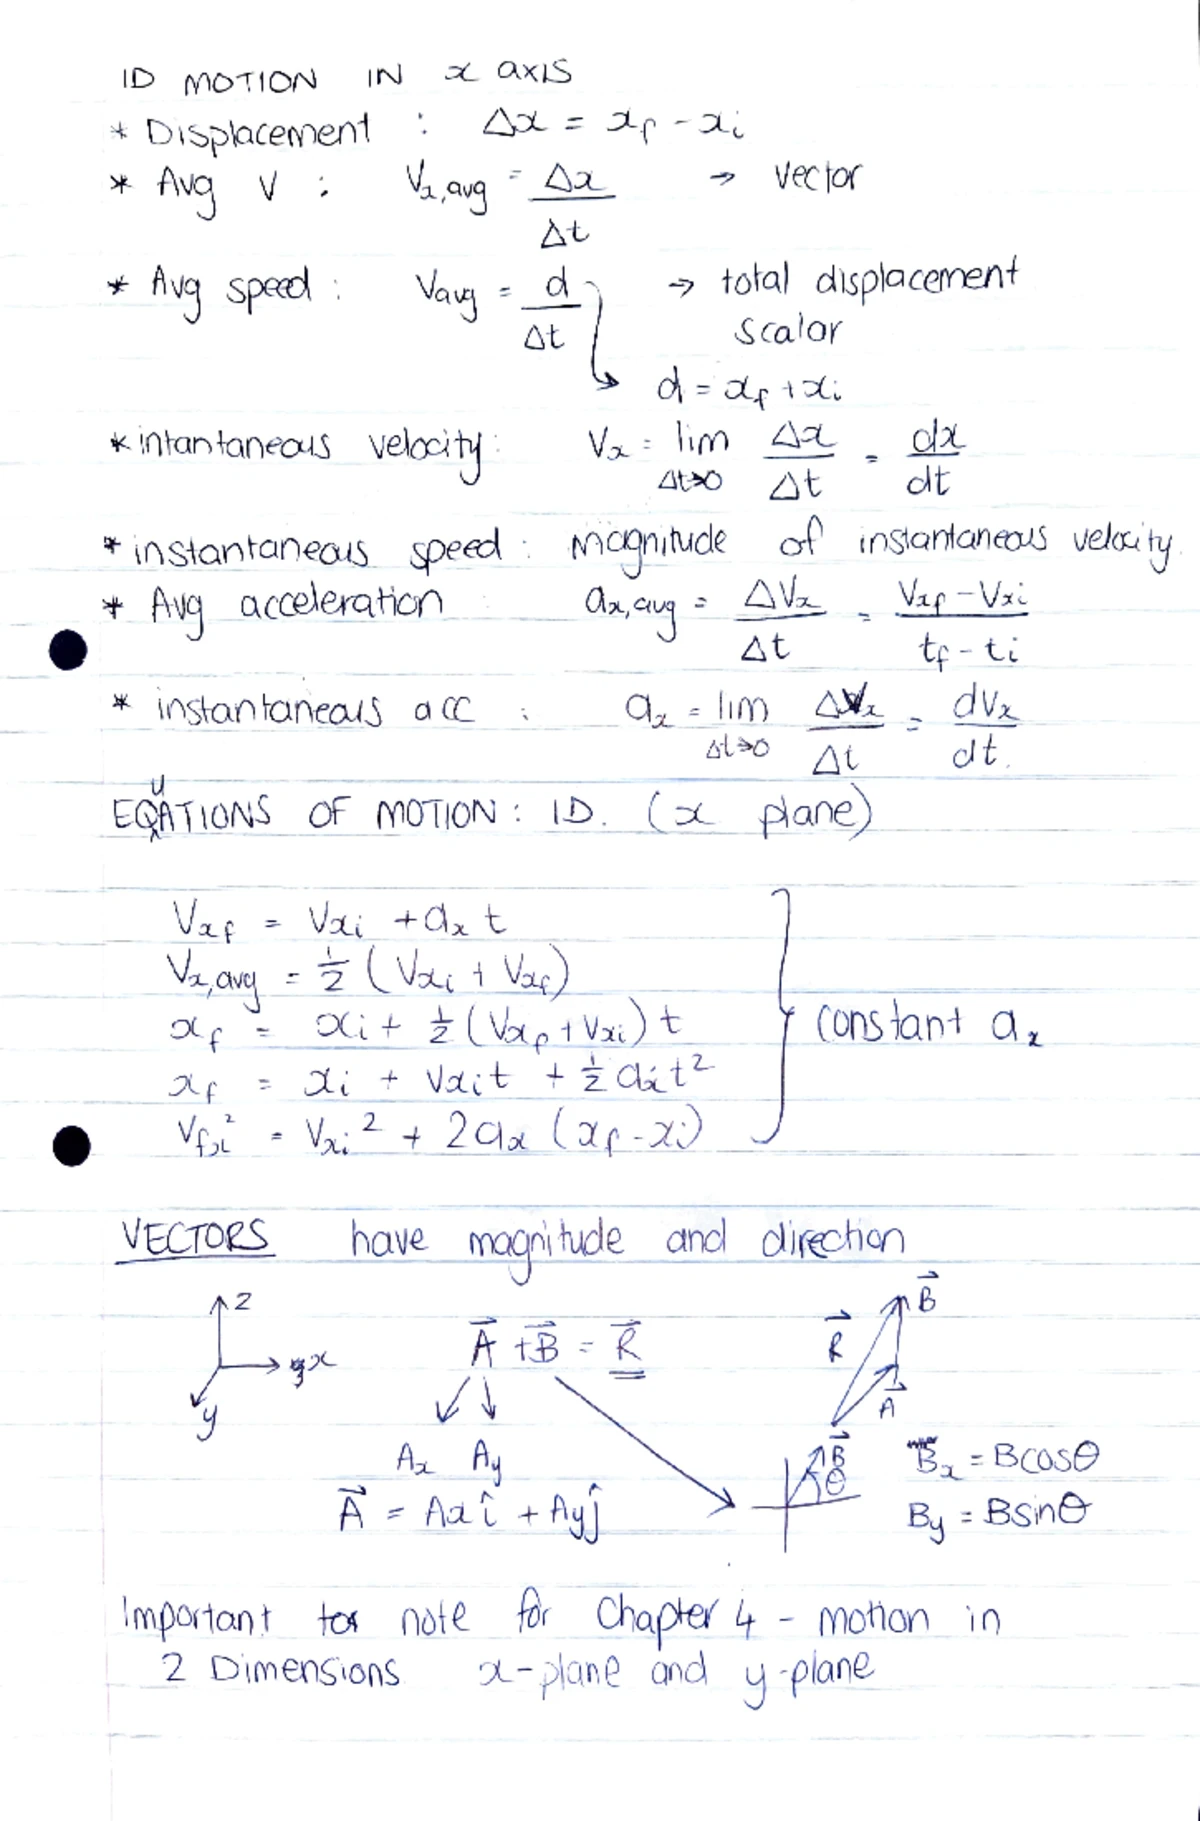 1D MOTION IN x axis
* Displacement : Δx = xf - xi
* Avg V : Vx,avg = Δx/Δt → vector
* Avg speed : Vavg = d/Δt → total displacement
scalar
↳ d = xf + xi
* intantaneous velocity: Vx = lim Δt→0 Δx/Δt = dx/dt
* instantaneous speed : magnitude of instantaneous velocity.
* Avg acceleration : ax,avg = ΔVx/Δt = Vxf - Vxi/tf - ti
* instantaneous acc : ax = lim Δt→0 ΔVx/Δt = dVx/dt.
EQUATIONS OF MOTION: 1D. (x plane)
Vxf = Vxi + ax t
Vx,avg = ½ (Vxi + Vxf)
xf = xi + ½ (Vxf + Vxi) t } constant ax
xf = xi + Vxi t + ½ ax t²
Vfx² = Vxi² + 2ax (xf - xi)
VECTORS have magnitude and direction
z
x
y
A⃗ + B⃗ = R⃗
R⃗ B⃗ A⃗
Ax Ay
B⃗ θ
Bx = Bcosθ
A⃗ = Ax î + Ay ĵ
By = Bsinθ
Important to note for Chapter 4 - motion in
2 Dimensions x-plane and y-plane